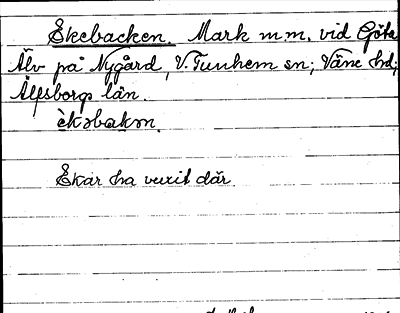 Ekebacken. Mark m.m. vid Göta
Älv på Nygård, V. Tunhem sn; Väne hd;
Älfsborgs län.
Ekar ha vuxit där